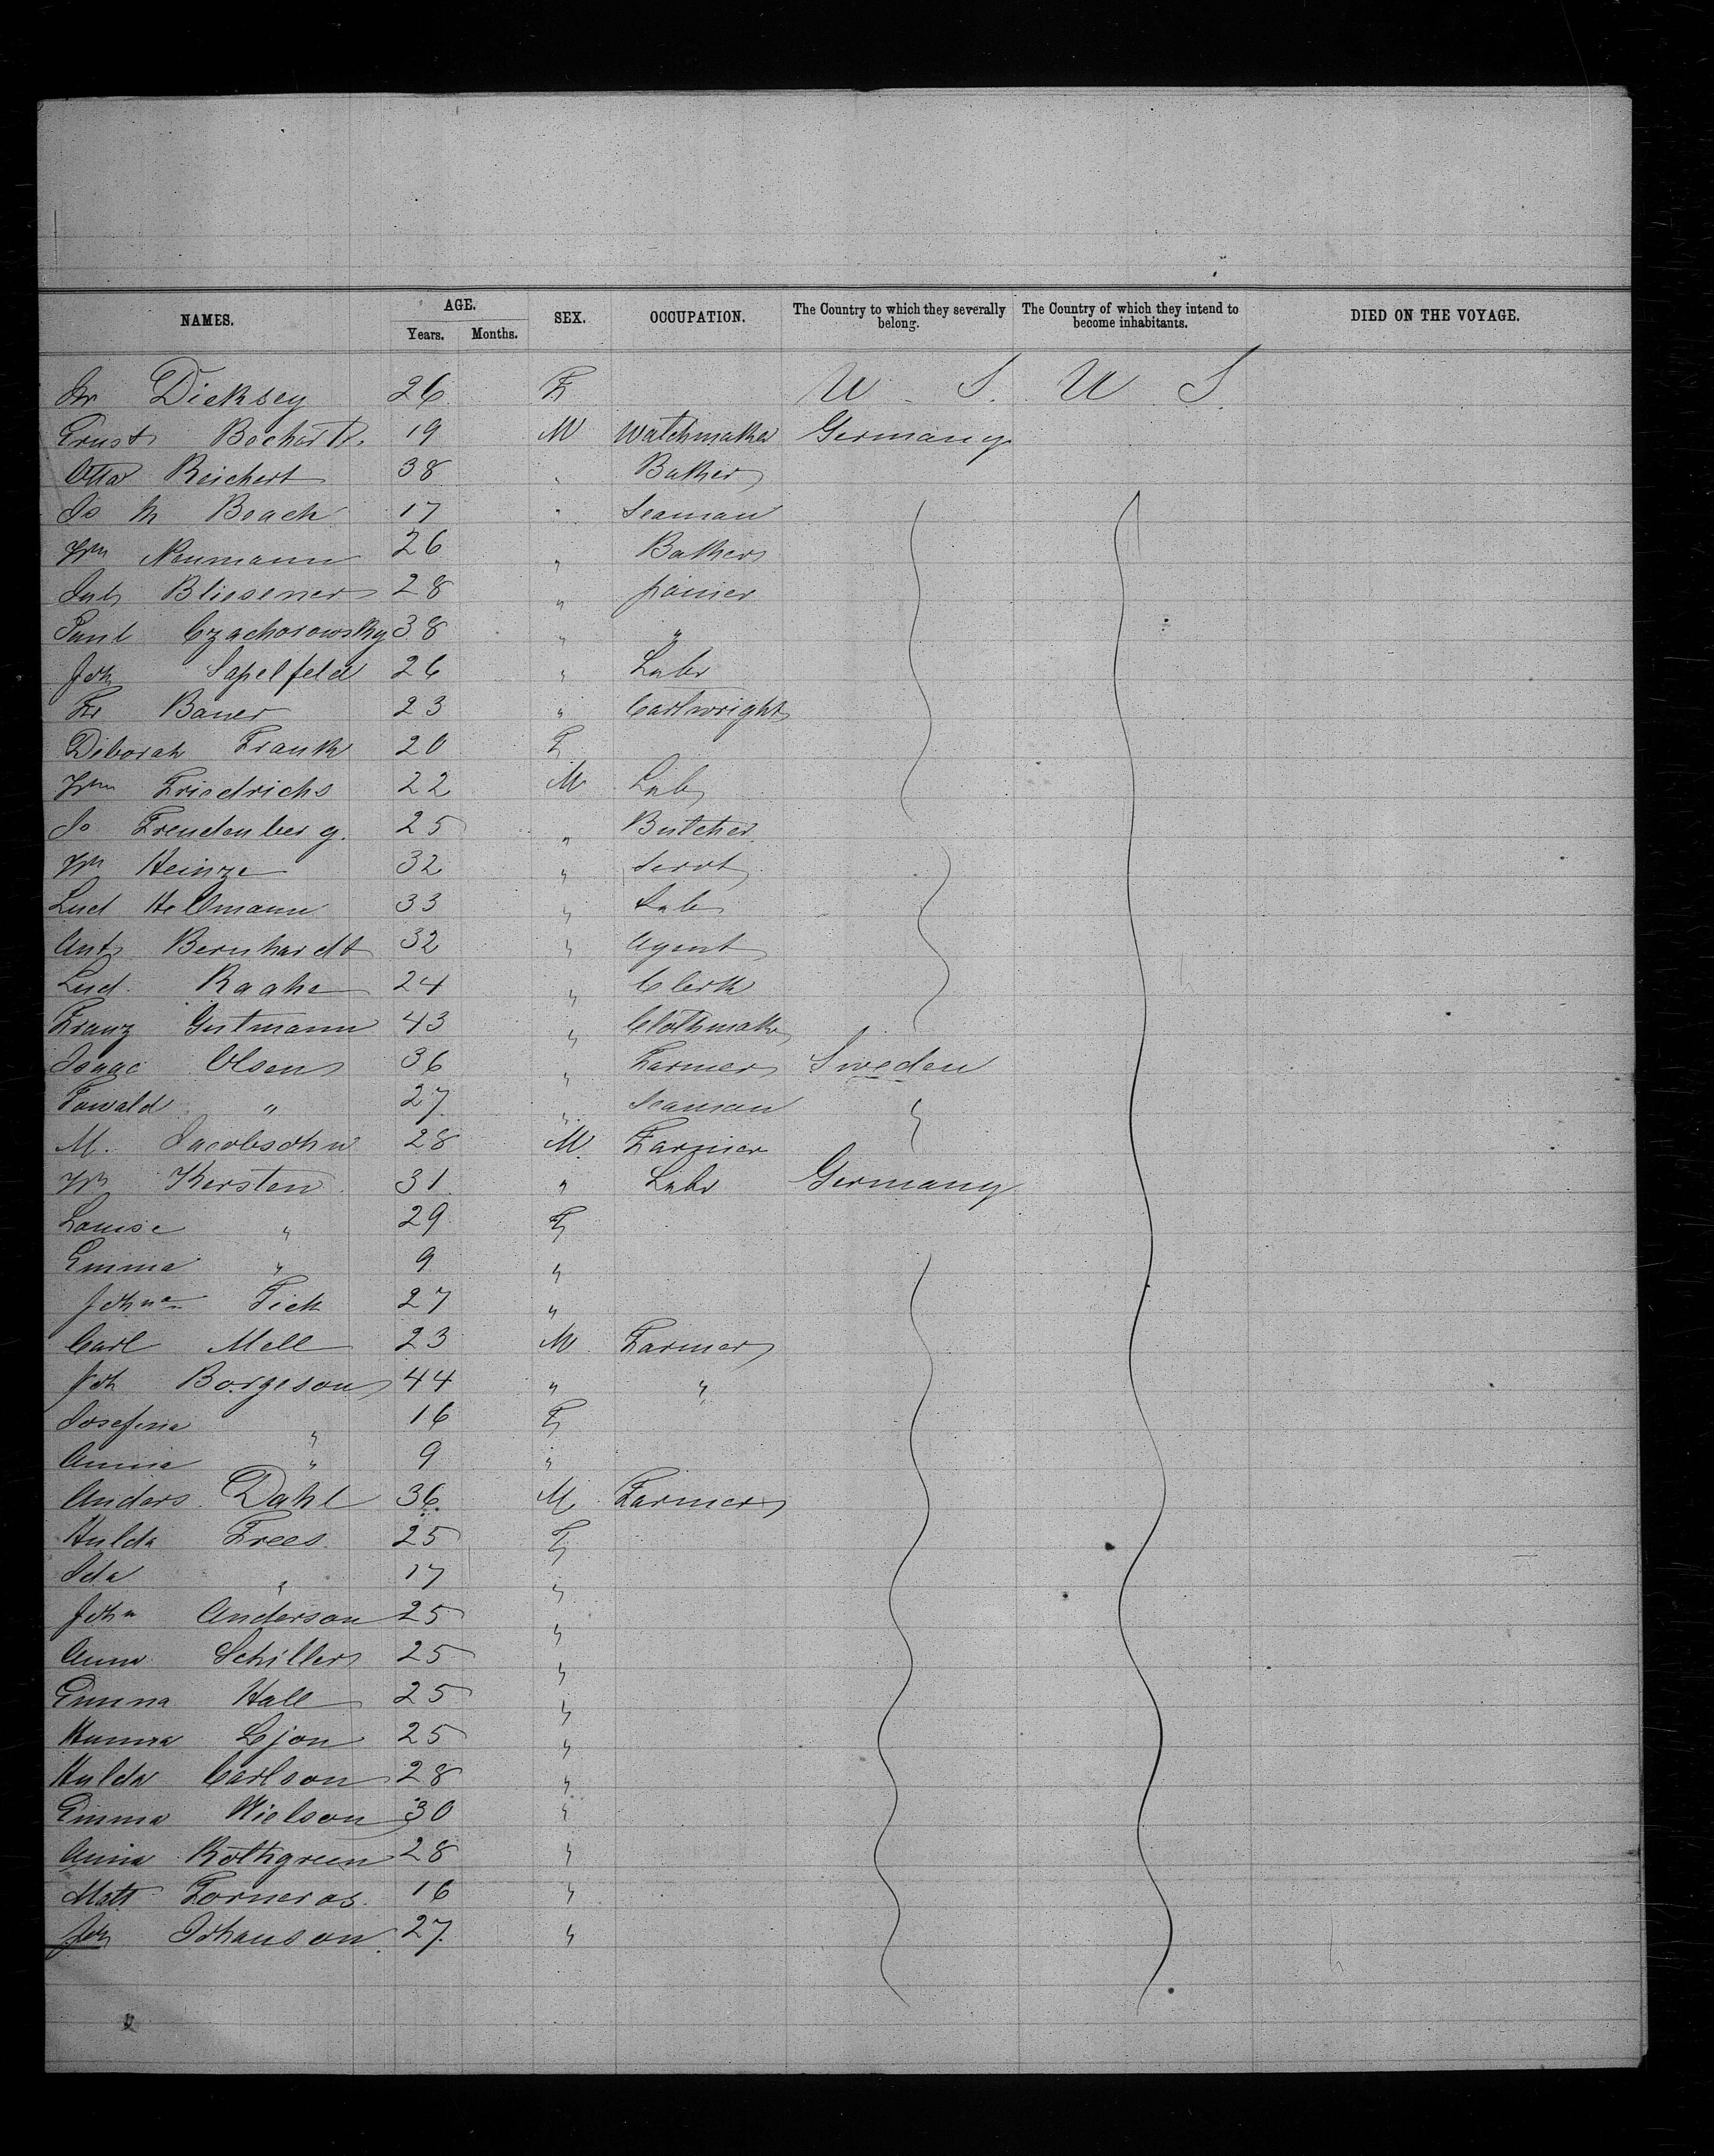 NAMES. AGE. Years. Months. SEX. OCCUPATION. The Country to which they severally belong. The Country of which they intend to become inhabitants. DIED ON THE VOYAGE.
Dicksey 26 F U. S. U. S.
Ernst Bochardt 19 M Watchmaker Germany
Otto Reichert 38 " Baker
Beach 17 " Seaman
Wm Neumann 26 " Baker
Bliesener 28 " joiner
Paul Czachorowsky 38 " "
Joh Sapelfeld 26 " Labr
Fr Bauer 23 " Cartwright
Deborah Frank 20 F
Wm Friedrichs 22 M Lab
Jo Freudenberg. 25 " Butcher
Wm Heinze 32 " Servt
Lud Hellmann 33 " Lab
Ant Bernhardt 32 " Agent
Lud. Raahe 24 " Clerk
Franz Gutmann 43 " Clothmakr
Isaac Olsen 36 " Farmer Sweden
" 27 " Seaman "
M. Jacobsohn 28 M. Farmer
Wm Kersten 31 " Labr Germany
Louise " 29 F
Emma " 9 "
Johna Fick 27 "
Carl Mell 23 M Farmer
Joh Borgeson 44 " "
Josefina " 16 F
Anna " 9 "
Anders Dahl 36 M Farmer
Hulda Frees 25 F
Ida " 17 "
Joha Anderson 25 "
Anna Schiller 25 "
Emma Hall 25 "
Hanna Ljon 25 "
Hulda Carlson 28 "
Emma Nielson 30 "
Anna Rothgreen 28 "
Matt Forneros 16 "
Joh Johanson 27 "